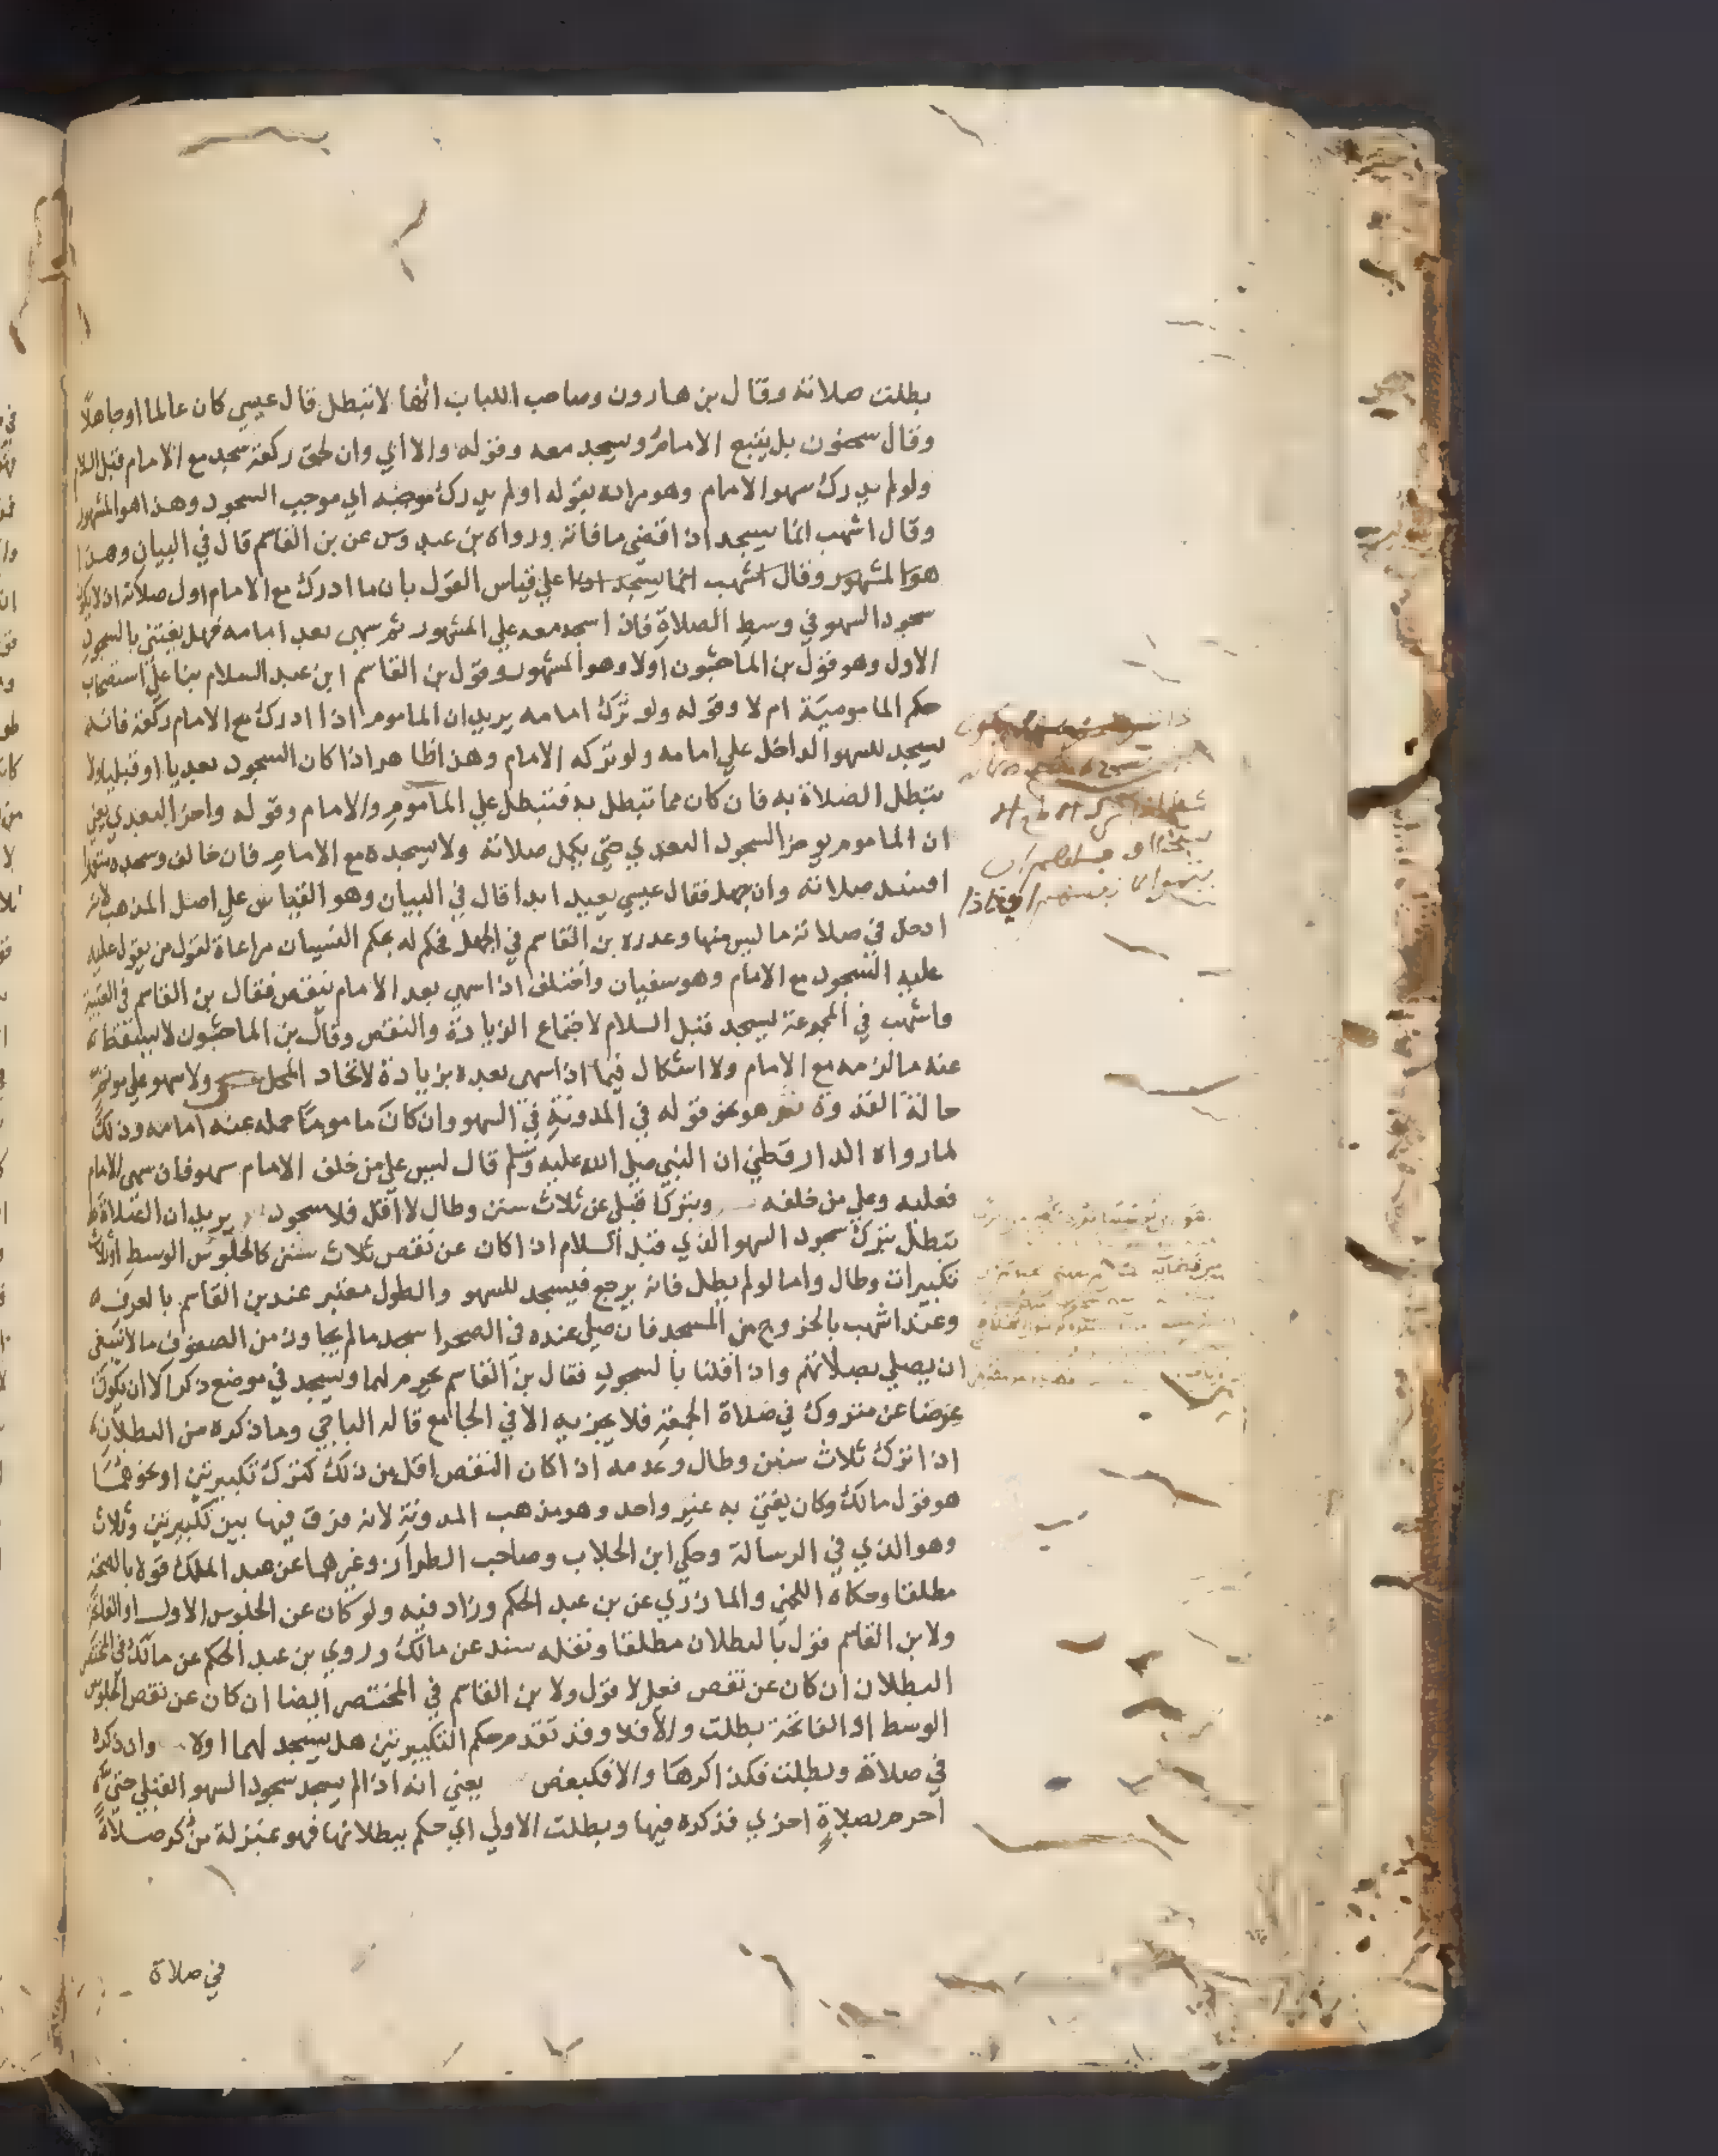 بطلت صلاته وقال بن هارون وصاحب اللباب انها لا تبطل قال عيسي كان عالما اوجاهلا
وقال سحنون بل يتبع الامام ويسجد معه وقوله والا اي وان لحق ركعة سجد مع الامام قبل السلام
ولولم يدرك سهوالامام وهومراده بقوله اولم يدرك موجبه اي موجب السجود وهذاهوالمشهور
وقال اشهب انما يسجد اذا قضي مافاته ورواه بن عبدوس عن بن القاسم قال في البيان وهذا
هوالمشهور وقال اشهب انما يسجد اذا علي قياس القول بان ما ادرك مع الامام اول صلاته اذ لايكون
سجود السهو في وسط الصلاة فاذا سجد معه علي المشهور ثم سهي بعد امامه فهل يغتني بالسجود
الاول وهو قول بن الماجشون اولا وهو المشهور وقول بن القاسم ابن عبد السلام بنا علي استصحاب
حكم المامومية ام لا وقوله ولو ترك امامه يريد ان الماموم اذا ادرك مع الامام ركعة فانه
يسجد للسهو الداخل علي امامه ولو تركه الامام وهذا ظاهر اذا كان السجود بعديا اوقبليا ولا
تبطل الصلاة به فان كان مما تبطل به فتبطل علي الماموم والامام وقوله واخر البعدي يعني
ان الماموم يوخر السجود البعدي حتي يكمل صلاته ولايسجده مع الامام فان خالف وسجده متعمدا
افسد صلاته وان جهل فقال عيسي يعيد ابدا قال في البيان وهو القياس علي اصل المذهب لانه
ادخل في صلاته ما ليس منها وعذره بن القاسم في الجهل فحكم له بحكم النسيان مراعاة لقول من يقول عليه
عليه السجود مع الامام وهو سفيان واختلف اذا سهي بعد الامام بنقص فقال بن القاسم في العتبية
واشهب في المجموعة يسجد قبل السلام لاجتماع الزيادة والنقص وقال بن الماجشون لا يسقط
عنه مالزمه مع الامام ولا اشكال فيما اذا سهي بعده بزيادة لاتحاد المحل ولاسهو علي موتم
حالة القدوة هو نحو قوله في المدونة في السهو وان كان ماموما حمله عنه امامه وذلك
لمارواه الدارقطني ان النبي صلي الله عليه وسلم قال ليس علي من خلف الامام سهو فان سهي الامام
فعليه وعلي من خلفه وبترك قبلي عن ثلاث سنن وطال لا اقل فلا سجود يريد ان الصلاة
تبطل بترك سجود السهو الذي قبل السلام اذا كان عن نقص ثلاث سنن كالجلوس الوسط اوثلاث
تكبيرات وطال واما لولم يطل فانه يرجع فيسجد للسهو والطول معتبر عند بن القاسم بالعرف
وعند اشهب بالخروج من المسجد فان صلي عنده في الصحرا سجد مالم يجاوز من الصفوف ما لا ينبغي
ان يصلي بصلاتهم واذا قلنا بالسجود فقال بن القاسم يحرم لهما ويسجد في موضع ذكر الا ان يكون
عوضا عن متروك في صلاة الجمعة فلا يجزيه الا في الجامع قاله الباجي وماذكره من البطلان
اذا ترك ثلاث سنن وطال وعدمه اذا كان النقص اقل من ذلك كترك تكبيرتين او نحوهما
هو قول مالك وكان يفتي به غير واحد وهو مذهب المدونة لانه فرق فيها بين تكبيرتين وثلاث
وهوالذي في الرسالة وحكي ابن الجلاب وصاحب الطراز وغيرهما عن عبد الملك قوله بالصحة
مطلقا وحكاه اللخمي والمازري عن بن عبد الحكم وزاد فيه ولو كان عن الجلوس الاول او الفاتحة
ولابن القاسم قول بالبطلان مطلقا ونقله سند عن مالك وروي بن عبد الحكم عن مالك في المختصر
البطلان ان كان عن نقص فعل لا قول ولابن القاسم في المختصر ايضا ان كان عن نقص الجلوس
الوسط او الفاتحة بطلت والا فلا وقد تقدم حكم التكبيرتين هل يسجد لهما اولا وان ذكره
في صلاة وبطلت فكذاكرها والا فكبعض يعني انه اذا لم يسجد سجود السهو القبلي حتي
احرم بصلاة اخري فذكره فيها وبطلت الاولي اي حكم ببطلانها فهو بمنزلة من ذكر صلاة
في صلاة